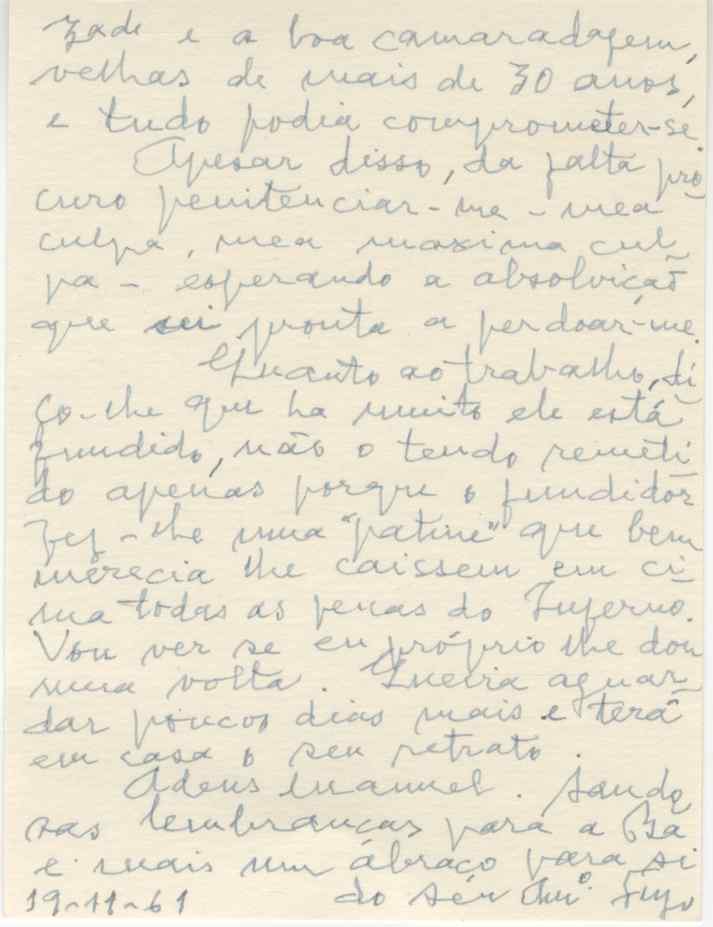 zade e a boa camaradagem,
velhas de mais de 30 anos,
e tudo podia comprometer-se.
Apesar disso, da falta pro
curo penitenciar-me - mea
culpa, mea maxima cul
pa - esperando a absolvição
que sei pronta a perdoar-me.
Quanto ao trabalho, di
ço-lhe que ha muito ele está
fundido, não o tendo remeti
do apenas porque o fundidor
fez-lhe uma "patine" que bem
merecia lhe caissem em ci
ma todas as penas do Inferno.
Vou ver se eu próprio lhe dou
uma volta. Queira aguar
dar poucos dias mais e terá
em casa o seu retrato.
Adeus Manuel. Saudo
sas lembranças para a
e mais um abraço para si
19-11-61 do seu